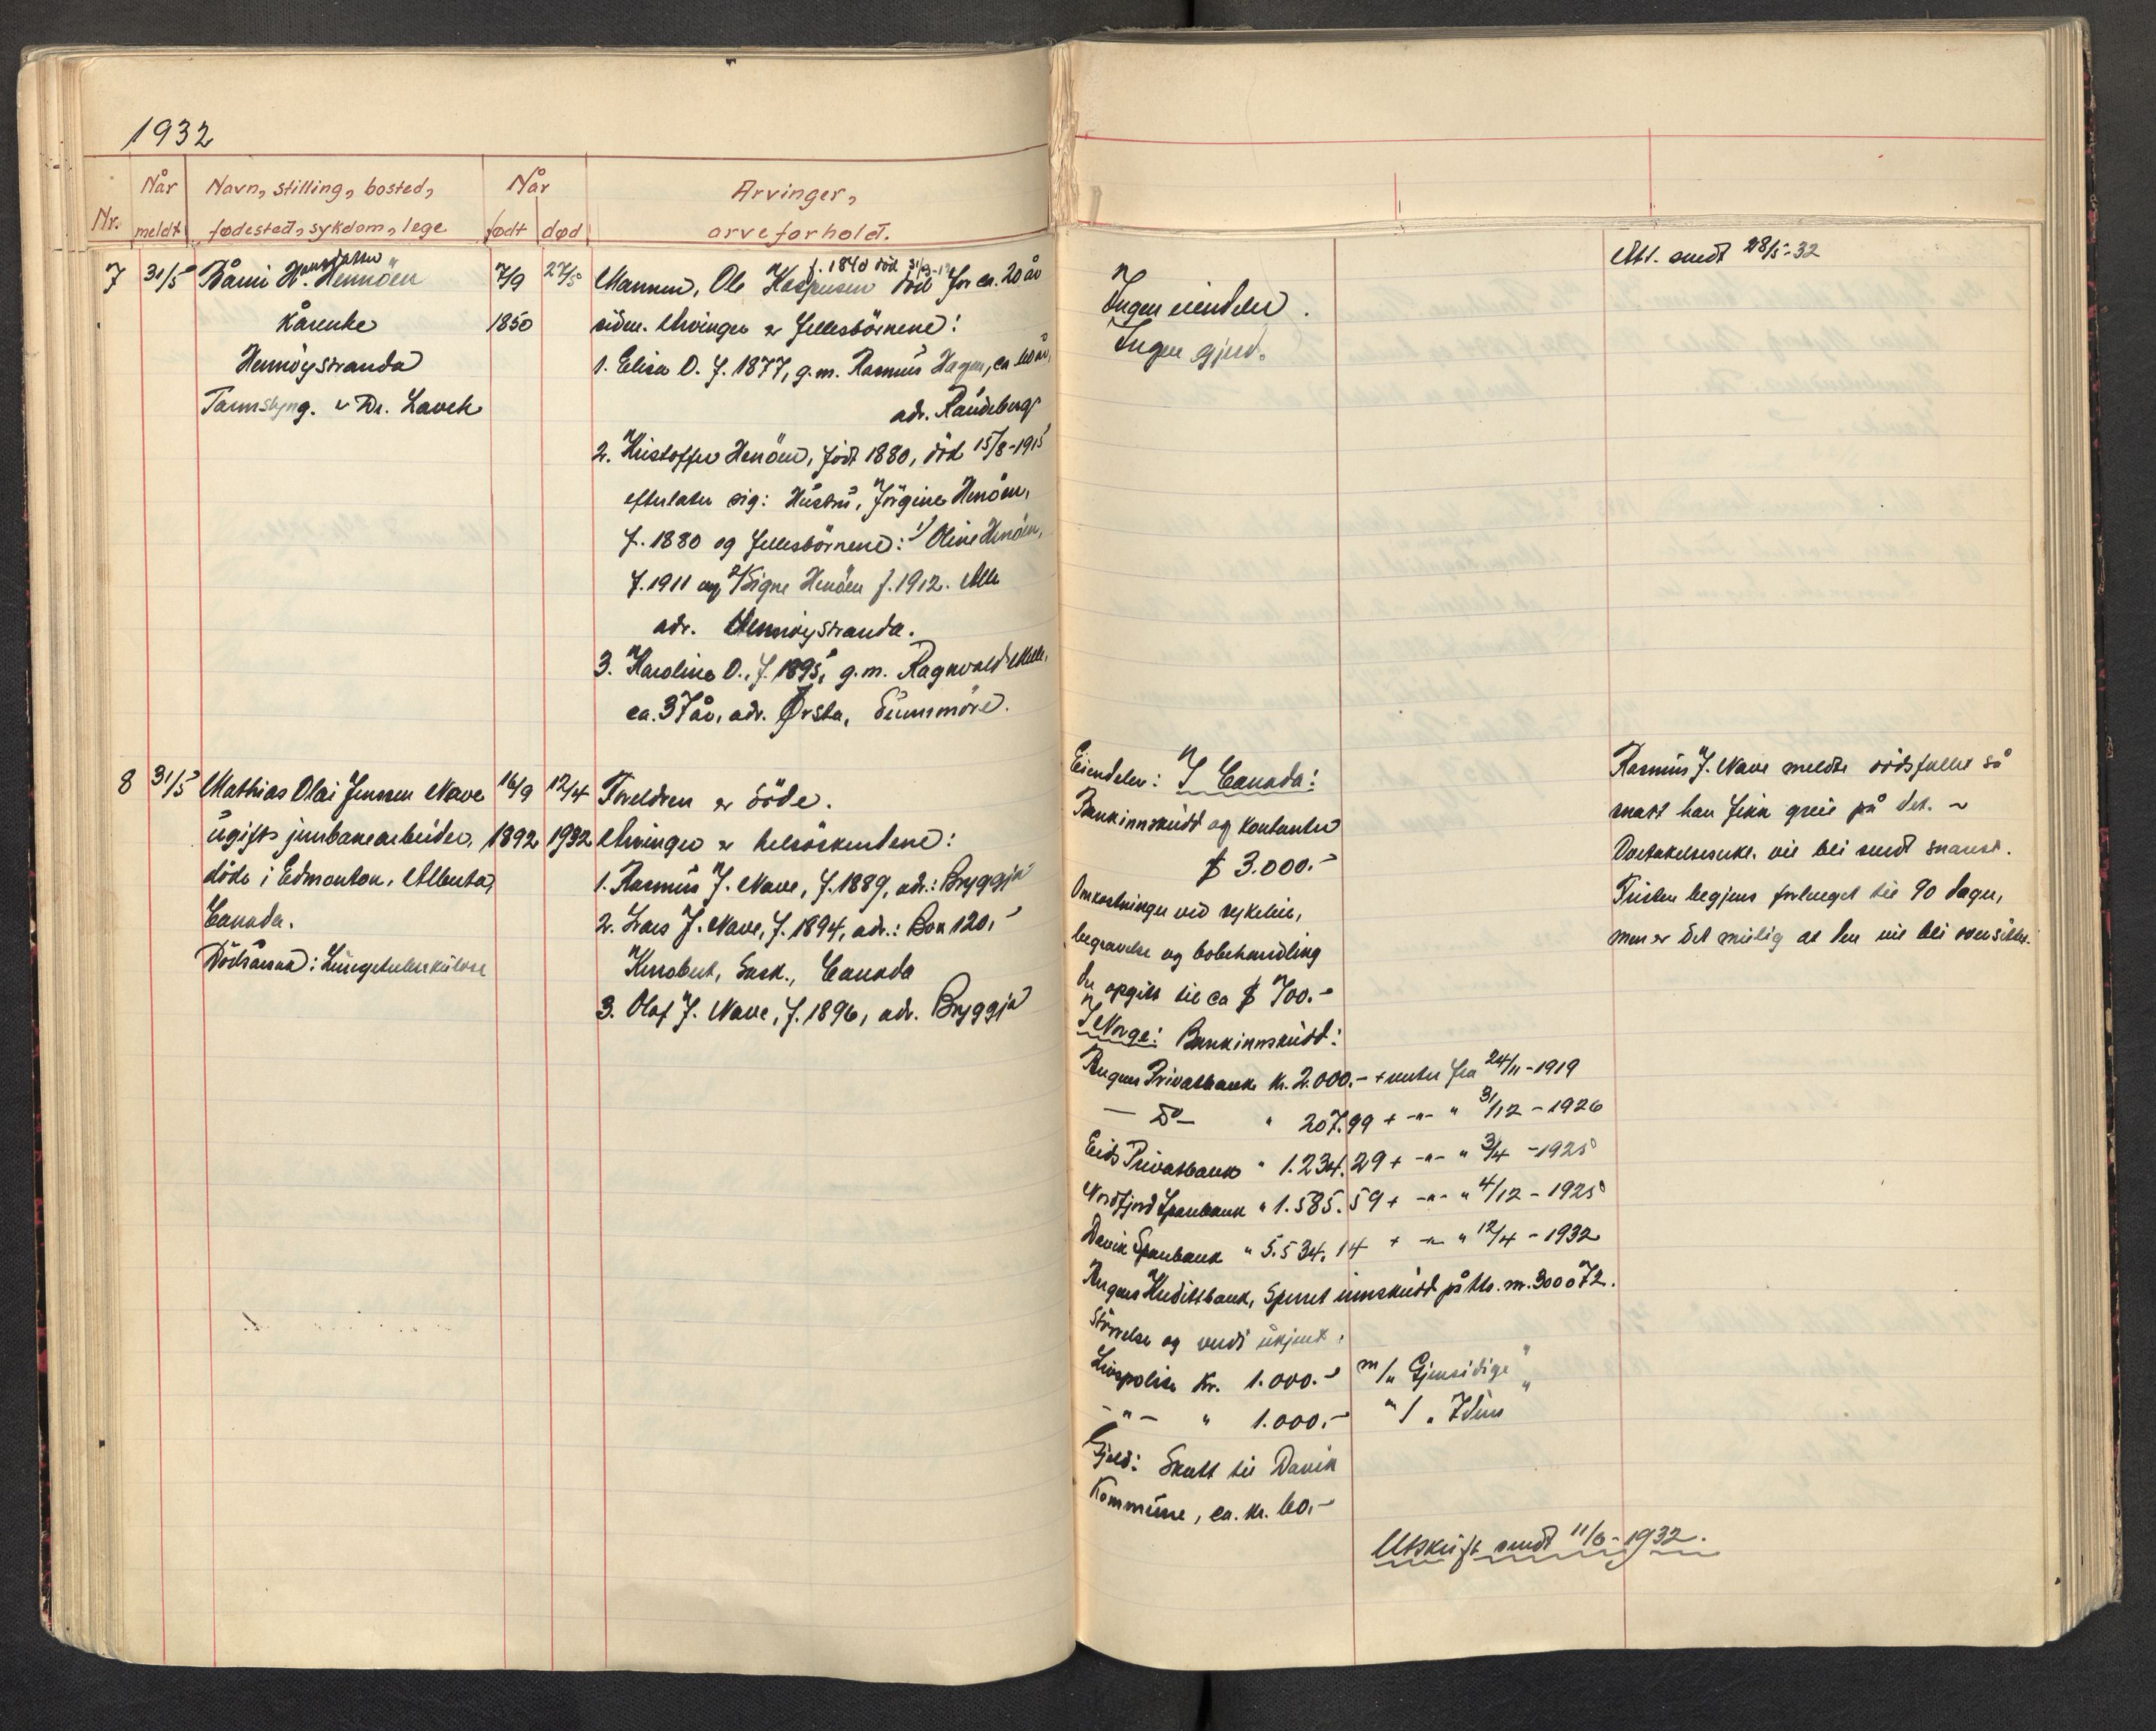 1932
Nr.
Når meldt
Navn, stilling, bosted, fødested, sykdom, lege
Når født død
Arvinger, arveforhold.
7 31/5 Hansdatter
Båmi H. Hennöen 7/9 27/5
Kårenke 1850
Hennöystranda
Tarmslyng. v Dr. Lavik
f. 1840 död
Mannen, Ole Kaspersen död for ca. 20 år
siden. Arvinger er fellesbörnene:
1. Elisa O. f. 1877, g.m. Rasmus Hagen, ca 60 år,
adr. Raudeberg
2. Kristoffer Henöen, född 1880, död 15/8-1915
efterlater sig: Hustru, Jörgine Henöen,
f. 1880 og fellesbörnene: 1/ Oline Henöen,
f. 1911 og 2/ Signe Henöen f. 1912. Alle
adr. Hennöystranda.
3. Karoline O., f. 1895, g.m. Ragnvald Melle,
ca. 37 år, adr. Ørsta, Sunnmöre.
Ingen eiendeler.
Ingen gjeld.
Att. sendt 28/5-32
8 31/5 Mathias Olai Jensen Nave 16/9 12/4
ugift jernbanearbeider, 1892 1932
döde i Edmonton, Alberta,
Canada.
Dödsårsak: Lungetuberkulose
Foreldren er döde.
Arvinger er helsöskendene:
1. Rasmus J. Nave, f. 1889, adr.: Bryggja
2. Lars J. Nave, f. 1894, adr.: Box 120,
Kerrobert, Sask., Canada
3. Olaf J. Nave, f. 1896, adr. Bryggja
Eiendeler: I Canada:
Bankinnskudd og kontanter
$ 3.000.-
Omkostninger ved sykeleie,
begravelse og bobehandling
er opgitt til ca $ 700.-
I Norge: Bankinnskudd:
Bergens Privatbank kr. 2.000.- + renter fra 24/11-1919
— Do — " 207.99 + -"- " 31/12-1926
Eids Privatbank " 1.234.29 + -"- " 3/4-1925
Nordfjord Sparebank " 1.585.59 + -"- " 4/12-1925
Davik Sparebank " 5.534.14 + -"- " 12/4-1932
Bergens Kreditbank, Sperret innskudd på kto. nr. 300072.
Störrelse og verdi ukjent.
Livspolise kr. 1.000.- m/ "Gjensidige"
- " - " 1.000.- " / "Idun"
Gjeld: Skatt til Davik
Kommune, ca. kr. 60.-
Utskrift sendt 11/6-1932.
Rasmus J. Nave meldte dödsfallet så
snart han fikk greie på det. ~
Overtakelseserkl. vil bli sendt snarest.
Fristen begjeres forlenget til 90 dager,
men er det mulig at den vil bli oversittet.